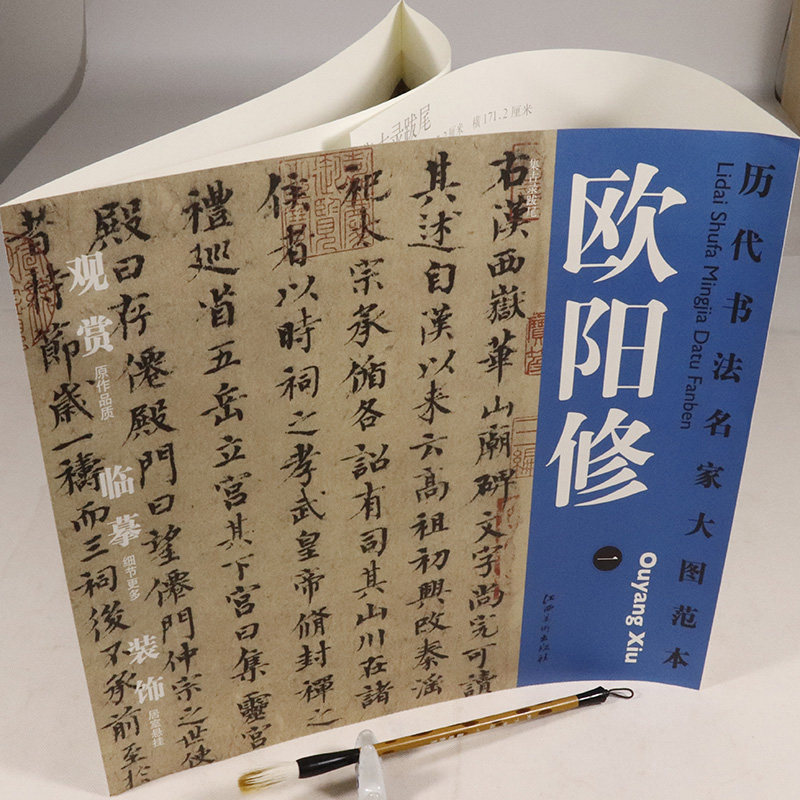 历代书法名家大图范本
Lidai Shufa Mingjia Datu Fanben
欧阳修
一
Ouyang Xiu
江西美术出版社
集古录跋尾
右漢西嶽華山廟碑文字尚完可讀
其述自漢以来云高祖初興改秦淫
祀太宗承循各詔有司其山川在諸
侯者以時祠之孝武皇帝脩封禪之
禮巡省五岳立宫其下宫曰集靈宫
殿曰存僊殿門曰望僊門仲宗之世使
者持節歳一禱而三祠後不承前至於
观赏
原作品质
临摹
细节更多
装饰
居室悬挂
跋尾
厘米 横171.2厘米